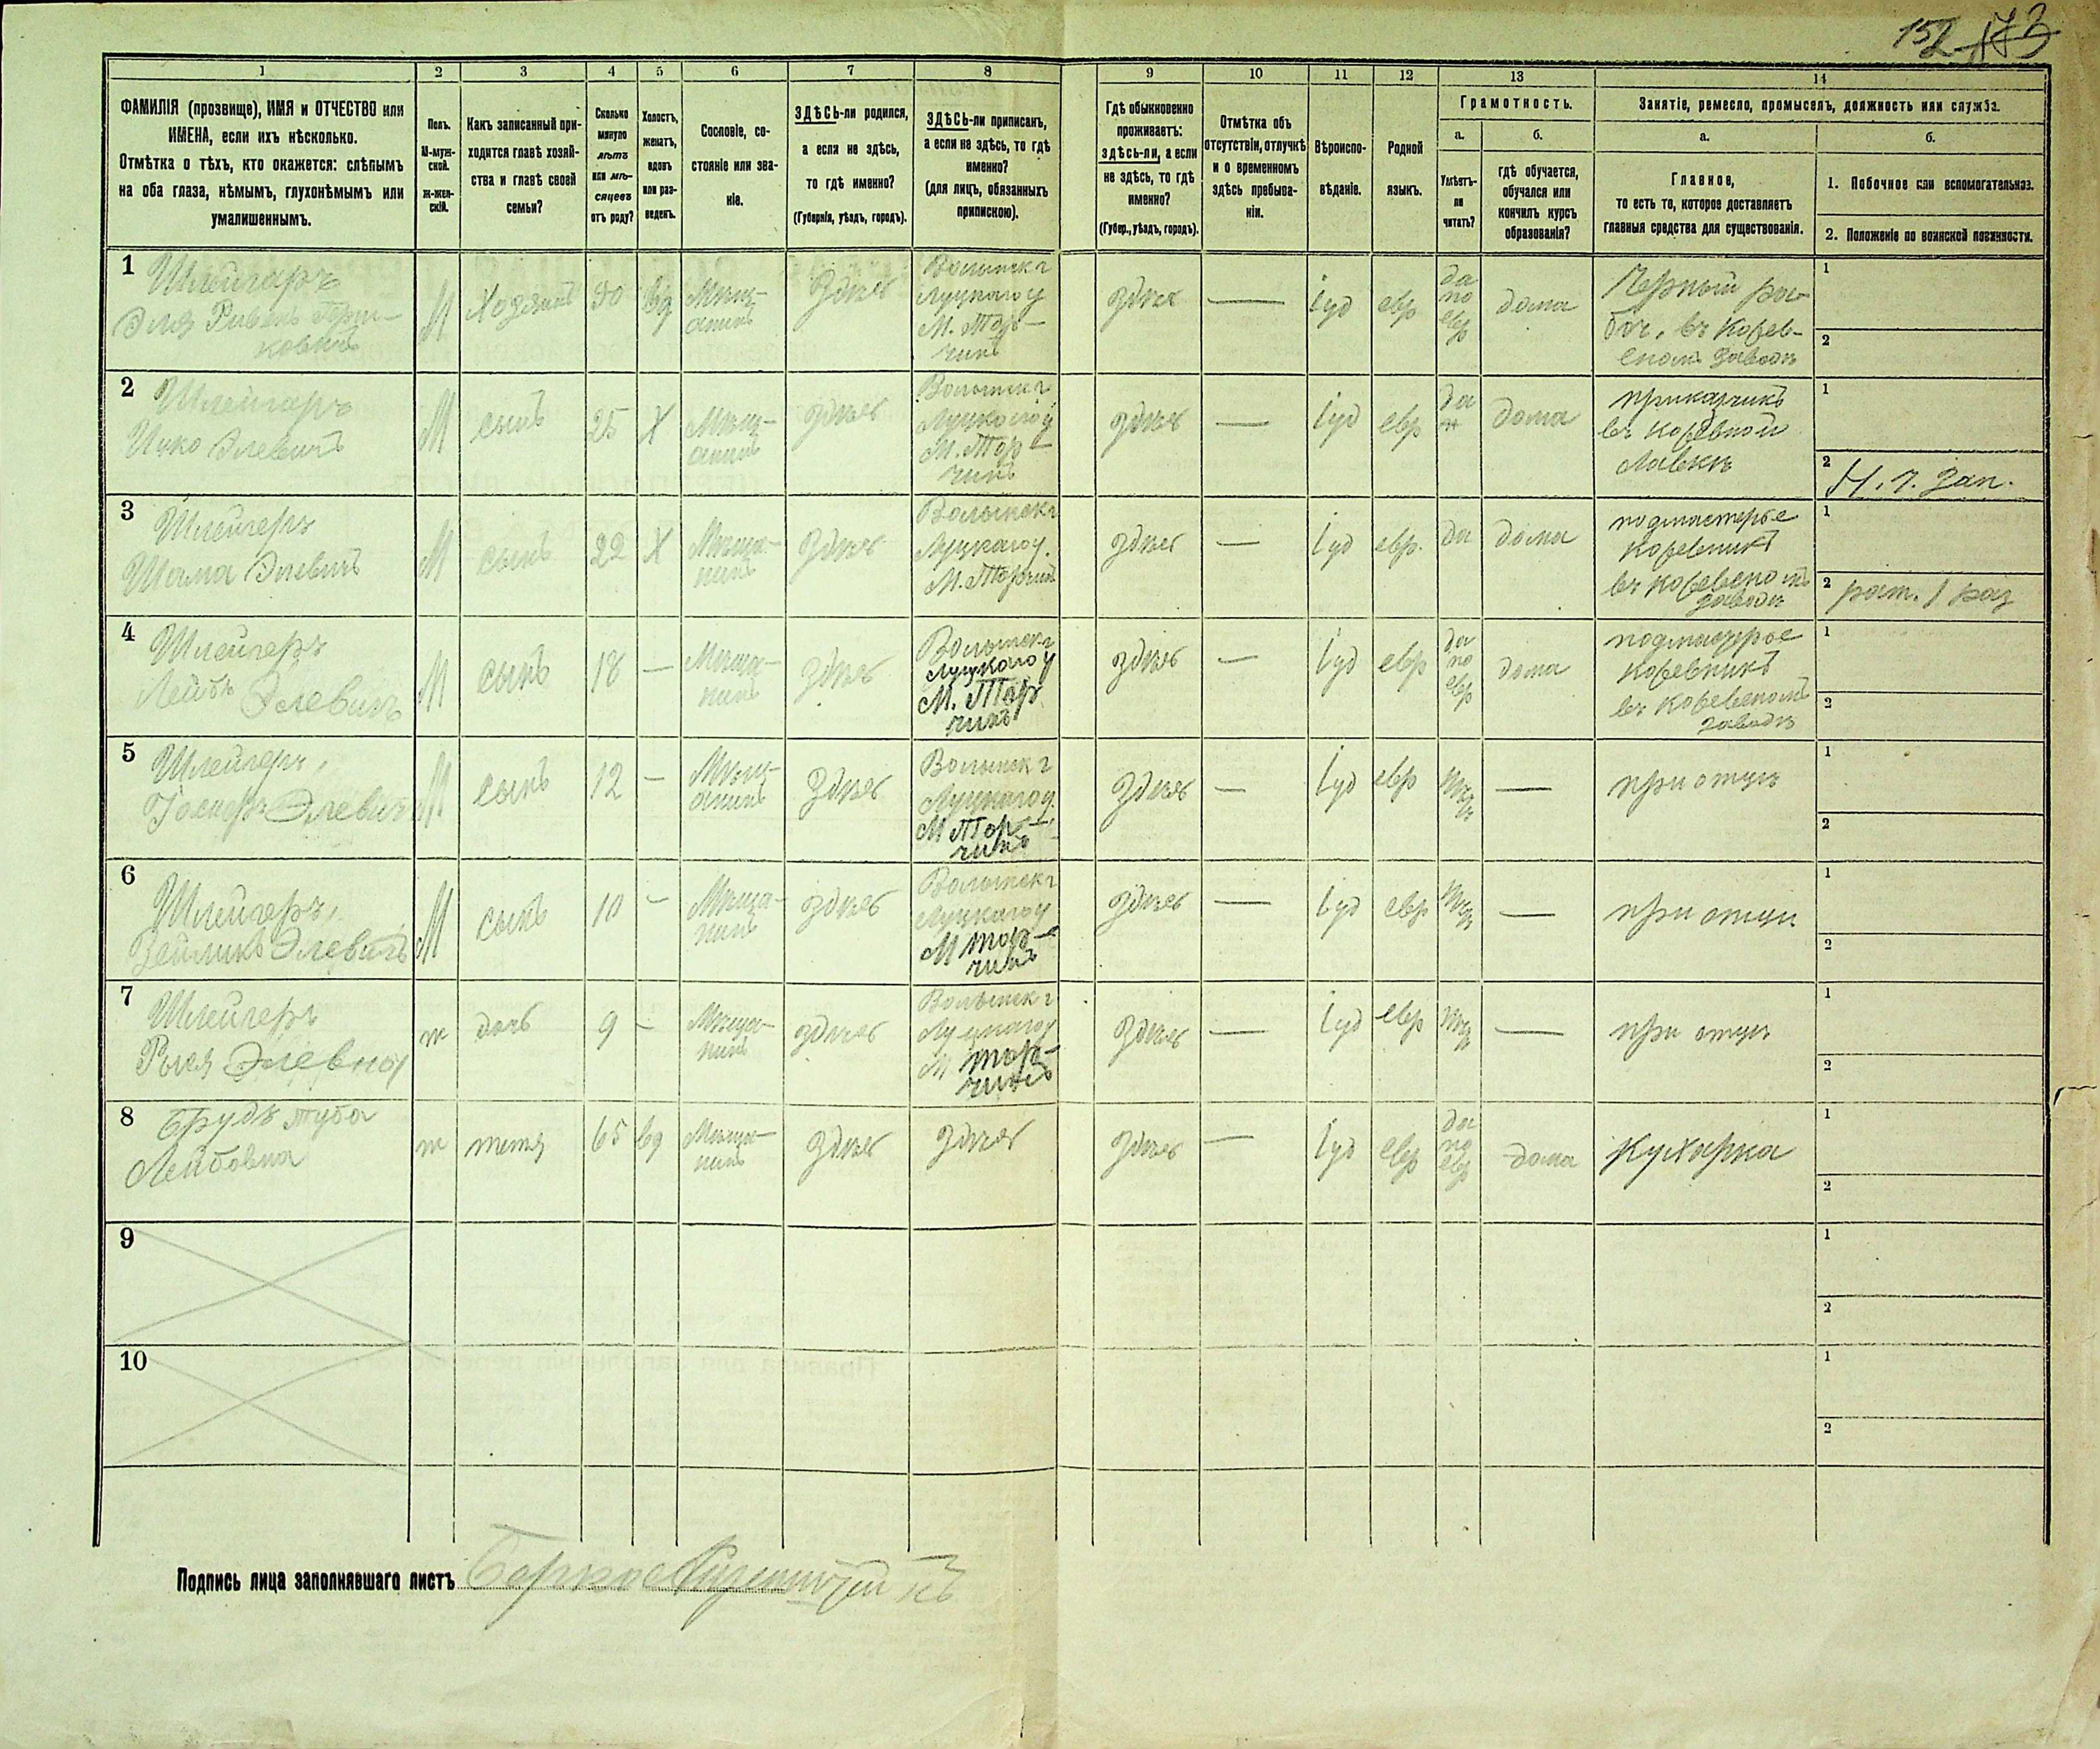 152 173
1 2 3 4 5 6 7 8 9 10 11 12 13 14
ФАМИЛІЯ (прозвище), ИМЯ и ОТЧЕСТВО или
ИМЕНА, если ихъ нѣсколько.
Отмѣтка о тѣхъ, кто окажется: слѣпымъ
на оба глаза, нѣмымъ, глухонѣмымъ или
умалишеннымъ.
Полъ.
М-муж-
ской.
Ж-жен-
скій.
Какъ записанный при-
ходится главѣ хозяй-
ства и главѣ своей
семьи?
Сколько
минуло
лѣтъ
или мѣ-
сяцевъ
отъ роду?
Холостъ,
женатъ,
вдовъ
или раз-
веденъ.
Сословіе, со-
стояніе или зва-
ніе.
ЗДѢСЬ-ли родился,
а если не здѣсь,
то гдѣ именно?
(Губернія, уѣздъ, городъ).
ЗДѢСЬ-ли приписанъ,
а если не здѣсь, то гдѣ
именно?
(для лицъ, обязанныхъ
припискою).
Гдѣ обыкновенно
проживаетъ:
здѣсь-ли, а если
не здѣсь, то гдѣ
именно?
(Губер., уѣздъ, городъ).
Отмѣтка объ
отсутствіи, отлучкѣ
и о временномъ
здѣсь пребыва-
ніи.
Вѣроиспо-
вѣданіе.
Родной
языкъ.
Грамотность.
а.
Умѣетъ-
ли
читать?
б.
гдѣ обучается,
обучался или
кончилъ курсъ
образованія?
Занятіе, ремесло, промыселъ, должность или служба.
а.
Главное,
то есть то, которое доставляетъ
главныя средства для существованія.
б.
1. Побочное или вспомогательное.
2. Положеніе по воинской повинности.
1 Шлейгеръ
Эля Ривенъ
М
Хозяинъ
50
вд
Мѣщ-
анинъ
Здѣсь
Волынск г
Луцкаго у
М. Тор-
чинъ
здѣсь
—
Іуд
евр
да
по
евр
дома
Черный ра-
боч. въ кожев-
еномъ заводѣ
1
2
2 Шлейгеръ
Ицко Элевичъ
М
сынъ
25
Х
Мѣщ-
анинъ
здѣсь
Волынск г
Луцкого у
М. Тор-
чинъ
здѣсь
—
Іуд
евр
да
дома
прикащикъ
въ кожевной
Лавкѣ
1
2 Н. 1. Зап.
3 Шлейгеръ
Шама Элевичъ
М
сынъ
22
Х
Мѣща-
нинъ
Здѣсь
Волынск г
Луцкаго у.
М. Торчинъ
здѣсь
—
Іуд
евр.
да
дома
подмастерье
кожевникъ
въ кожевеномъ
заводѣ
1
2 рат. 1 раз
4 Шлейгеръ
Лейбъ Элевичъ
М
сынъ
18
—
Мѣща-
нинъ
здѣсь
Волынск г
Луцкаго у
М. Тор
чинъ
здѣсь
—
Іуд
евр
да
по
евр
дома
подмастерье
кожевникъ
въ кожевеномъ
заводѣ
1
2
5 Шлейгеръ,
Элевичъ
М
сынъ
12
—
Мѣщ-
анинъ
Здѣсь
Волынск г
Луцкаго у.
М Тор-
чинъ
Здѣсь
—
Іуд
евр
—
при отцѣ
1
2
6 Шлейгеръ,
Зейликъ Элевичъ
М
сынъ
10
—
Мѣща-
нинъ
здѣсь
Волынск г
Луцкаго у
М Тор-
чинъ
здѣсь
—
Іуд
евр
—
при отцѣ
1
2
7 Шлейгеръ
Элевна
ж
дочь
9
—
Мѣща-
нинъ
здѣсь
Волынск г
Луцкаго у
М Тор-
чинъ
Здѣсь
—
Іуд
евр
—
при отцѣ
1
2
8 Брудъ Туба
Лейбовна
ж
тетя
65
вд
Мѣща-
нинъ
здѣсь
здѣсь
здѣсь
—
Іуд
евр
да
по
евр
дома
Кухарка
1
2
9
1
2
10
1
2
Подпись лица заполнявшаго листъ